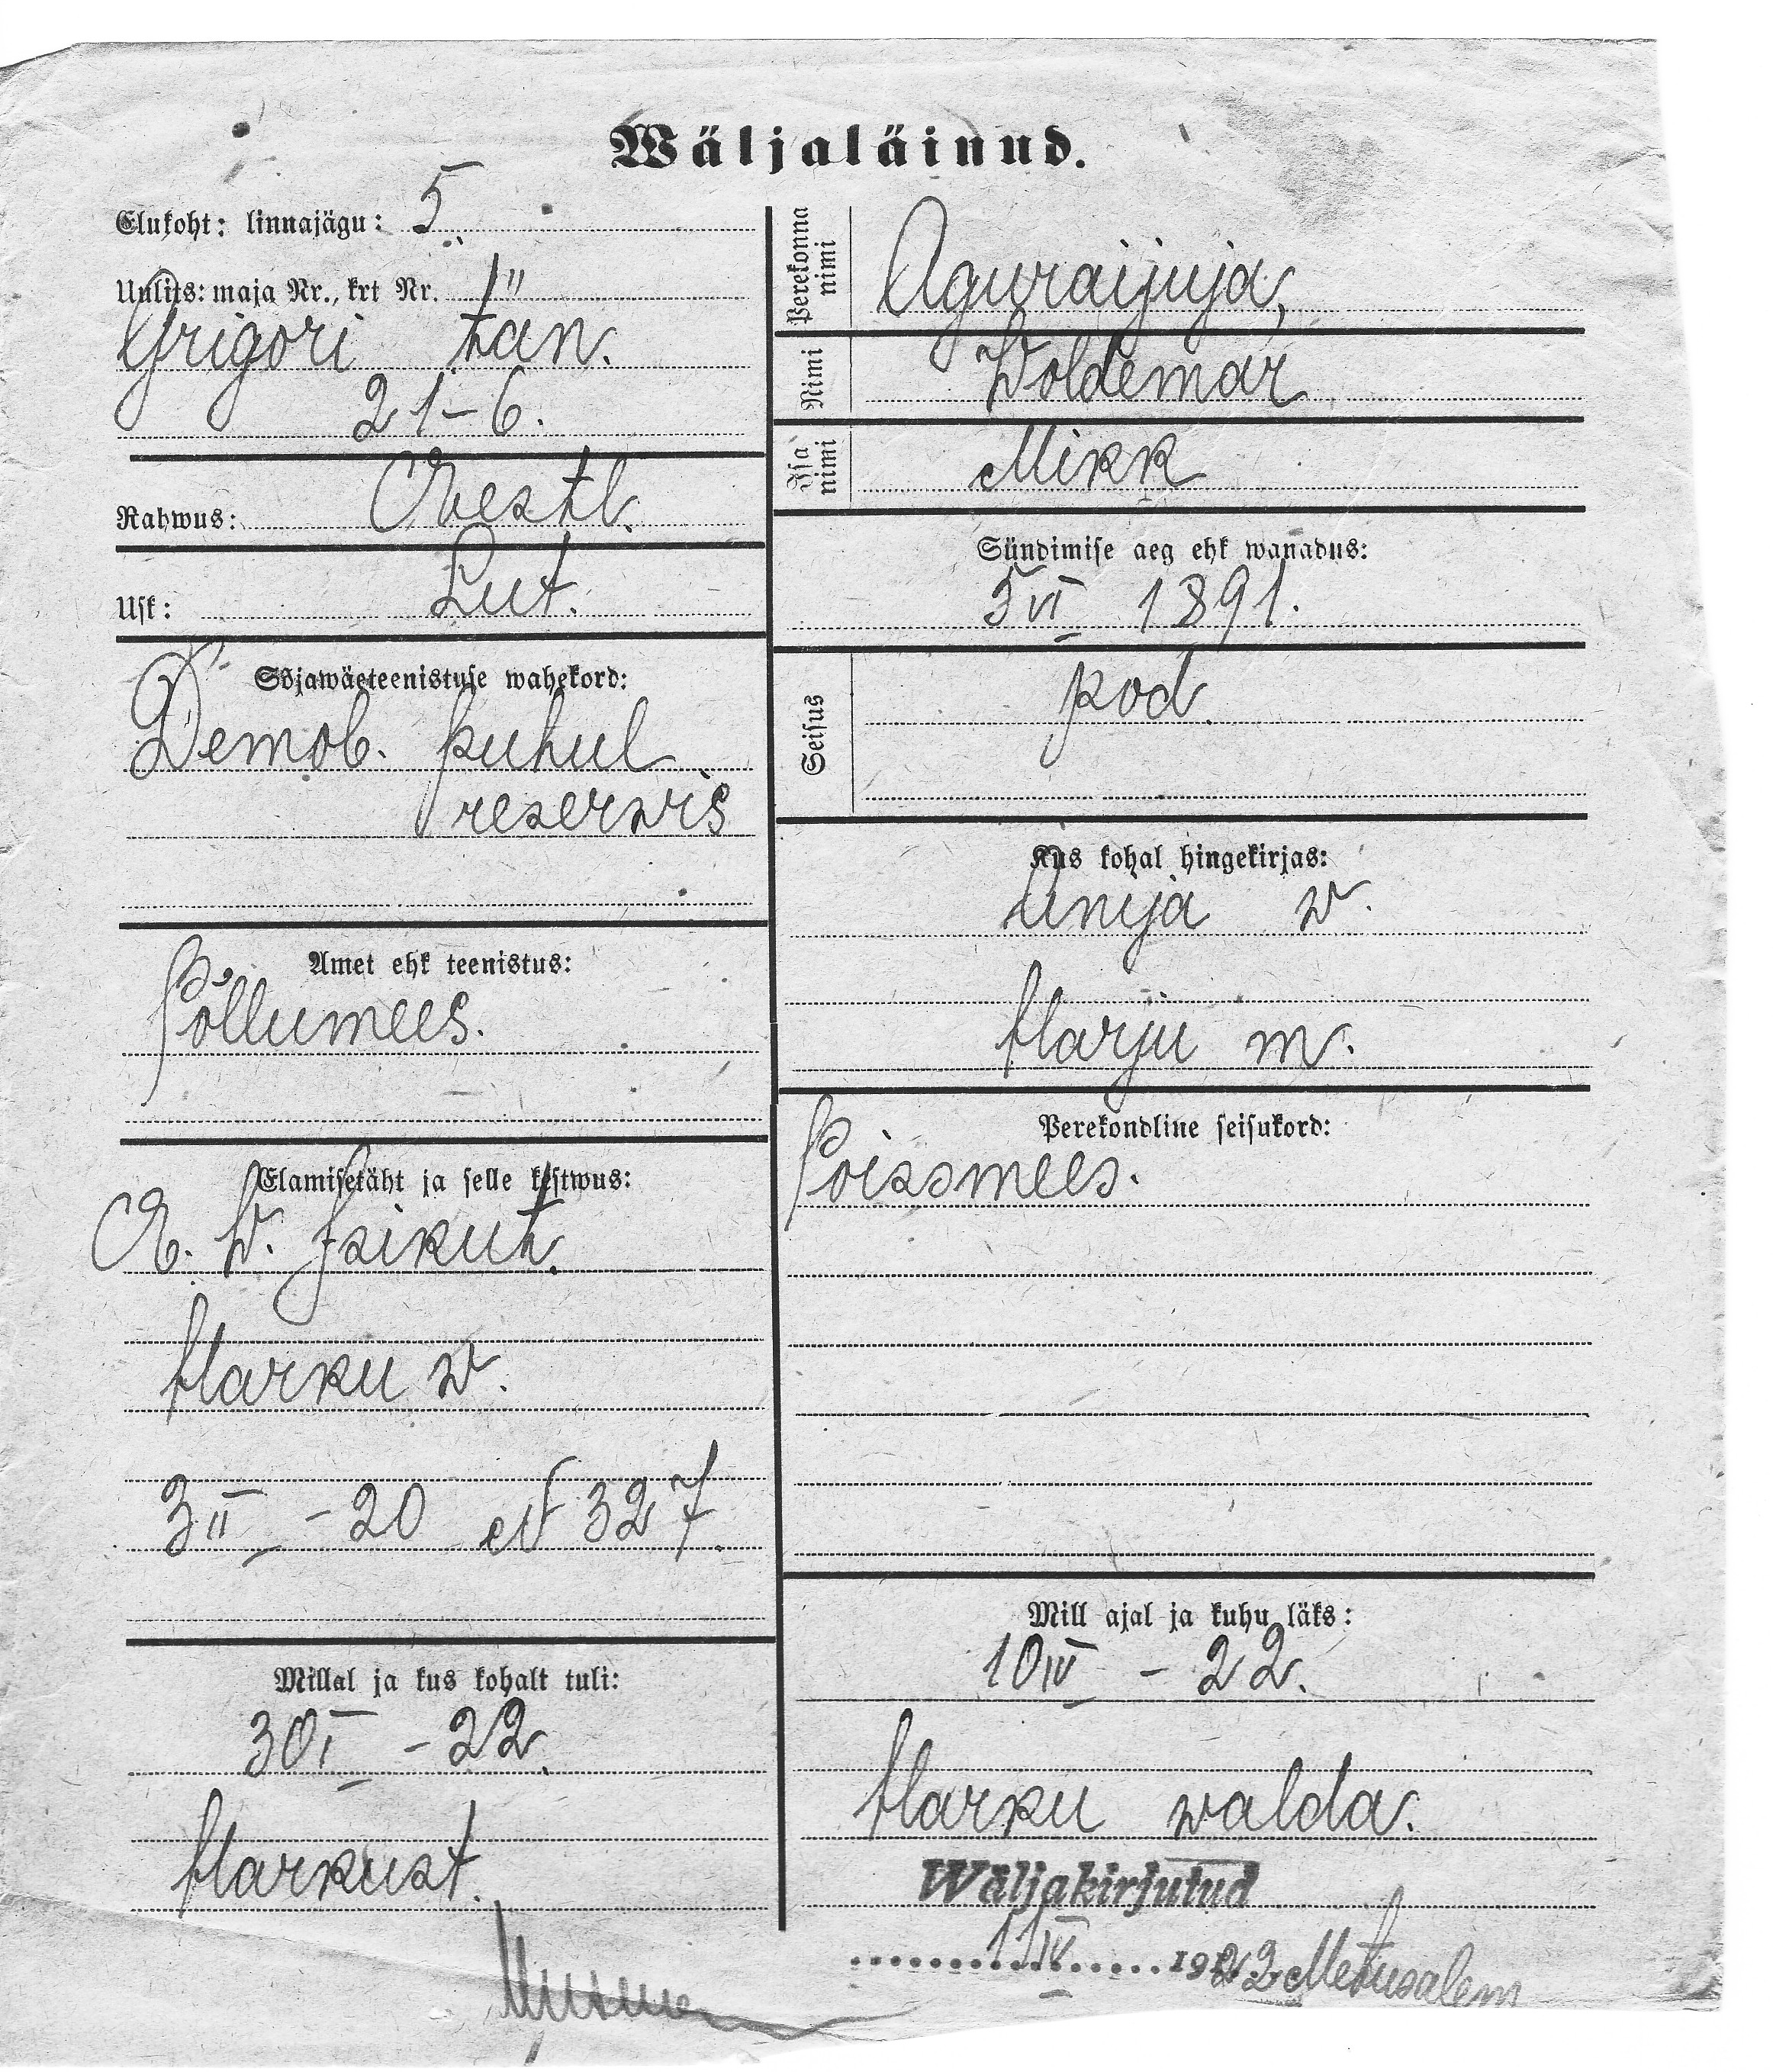 Wäljaläinud.
Elukoht: linnajägu: 5.
Uulits: maja Nr., krt Nr. 1"
Grigori tän.
21-6.
Rahwus: Eestl.
Usk: Lut.
Sõjawäeteenistuse wahekord:
Demob. puhul
reserwis
Amet ehk teenistus:
Põllumees.
Elamisetäht ja selle kestwus:
E. W. Isikut.
Harku w.
3 II - 20 N 327.
Millal ja kus kohalt tuli:
30 I - 22.
Harkust.
Perekonna nimi
Aguraijuja,
Nimi
Woldemar
Isa nimi
Mikk
Sündimise aeg ehk wanadus:
5 VI 1891.
Seisus
pod.
Kus kohal hingekirjas:
Anija w.
Harju m.
Perekondline seisukord:
Poissmees.
Mill ajal ja kuhu läks:
10 IV - 22.
Harku walda.
Wäljakirjutud
11 IV 1922 Metusalem